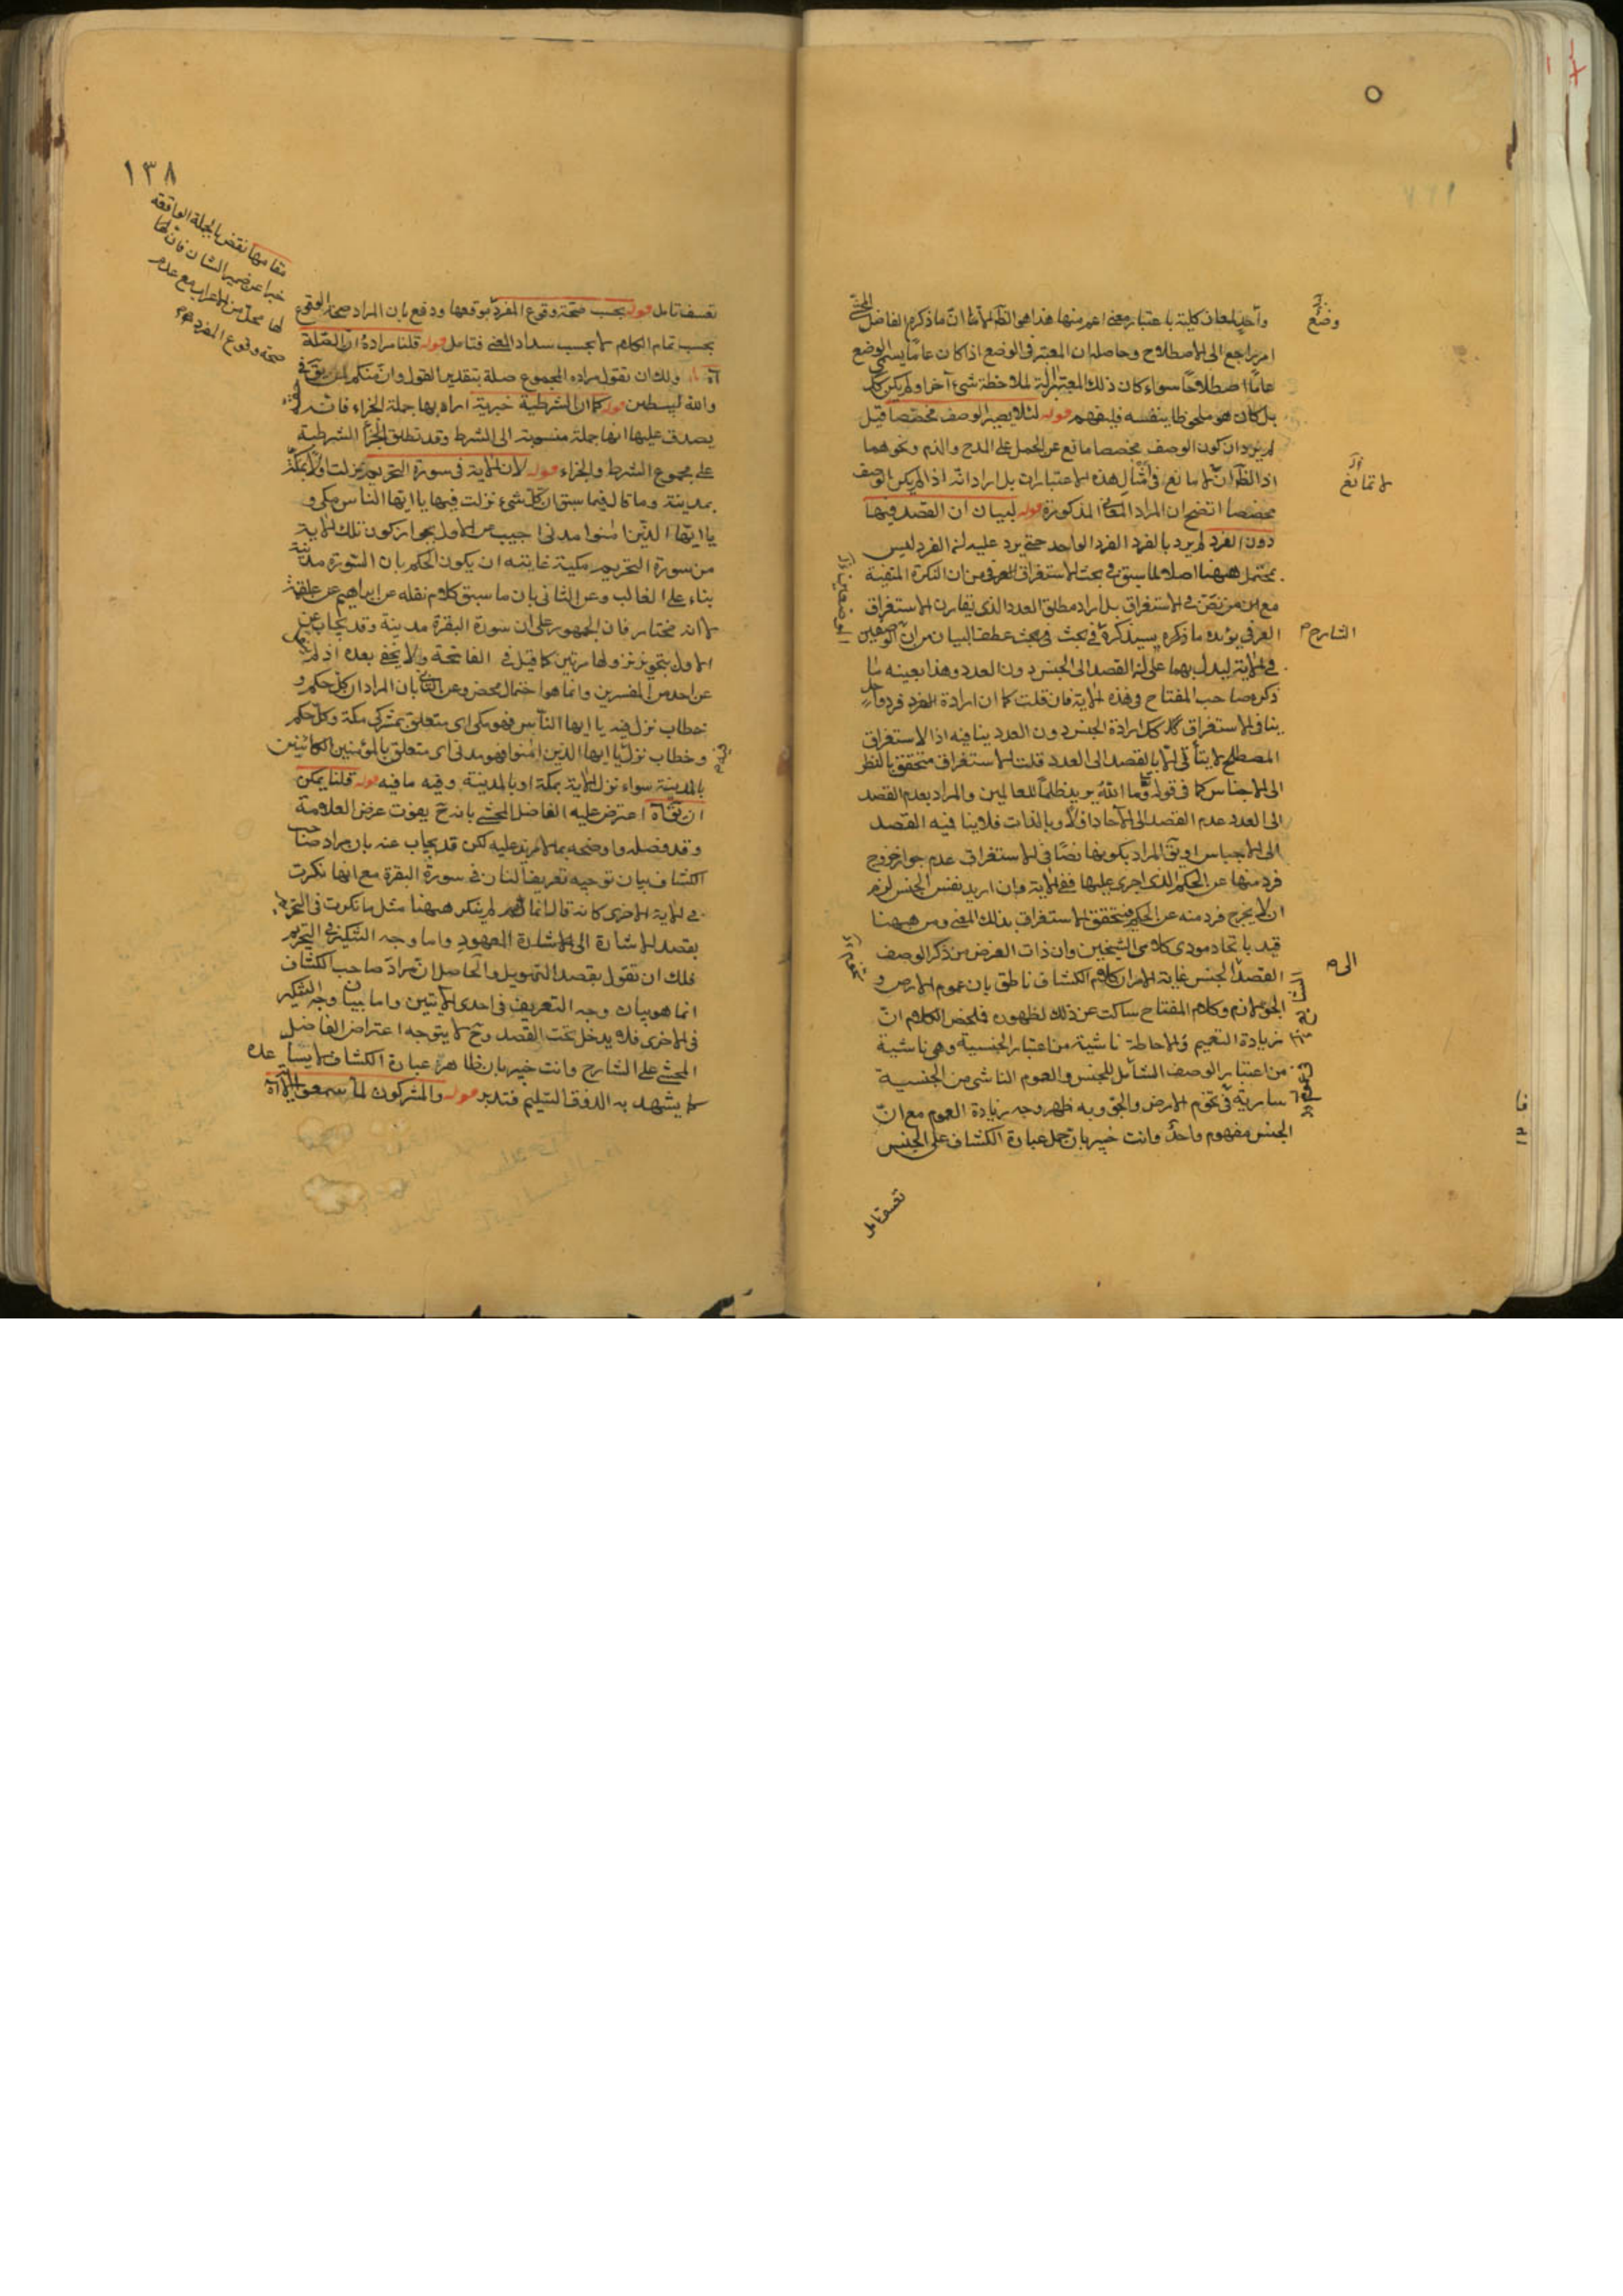 واحد لمعان كلية باعتبار معنى اعم منها هذا هو الظ اما ان ما ذكره الفاضل المحشي
امر راجع الى الاصطلاح وحاصله ان المعتبر في الوضع اذا كان عاما يسمى الوضع
عاما اصطلاحا سواء كان ذلك المعتبر الة لملاحظة شيء آخر او لم يكن كك
بل كان هو ملحوظا بنفسه فليفهم قوله لئلا يصير الوصف مخصصا قيل
لم يرد ان كون الوصف مخصصا مانع عن الحمل على المدح والذم ونحوهما
اذ الظ ان لا مانع في أمثال هذه الاعتبارات بل اراد انه اذا لم يكن الوصف
مخصصا اتضح ان المراد المعاني المذكورة قوله لبيان ان القصد فيها
دون الفرد لم يرد بالفرد الفرد الواحد حتى يرد عليه ان الفرد ليس
بمحتمل ههنا اصلا لما سبق في بحث الاستغراق العرفي من ان النكرة المنفية
مع من نص في الاستغراق بل اراد مطلق العدد الذي يقارن الاستغراق
العرفي يؤيده ما ذكره سيذكره في بحث عطف البيان من ان الوصفين
في الآية ليدل بهما على ان القصد الى الجنس دون العدد وهذا بعينه ما
ذكره صاحب المفتاح في هذه الآية فان قلت كما ان ارادة الفرد فردا
ينافي الاستغراق كذلك ارادة الجنس دون العدد ينافيه اذ الاستغراق
المصطلح لا يتأتى الا بالقصد الى العدد قلت الاستغراق متحقق بالنظر
الى الاجناس كما في قوله تع وما الله يريد ظلما للعالمين والمراد بعدم القصد
الى العدد عدم القصد الى الآحاد اولا وبالذات فلا ينافيه القصد
الى الاجناس او يق المراد بكونها نصا في الاستغراق عدم جواز خروج
فرد منها عن الحكم الذي اجرى عليها ففي الآية وان اريد نفس الجنس لزم
ان لا يخرج فرد منه عن الحكم فيتحقق الاستغراق بذلك المعنى ومن ههنا
قيد باتحاد مودى كلامى الشيخين وان ذات الغرض من ذكر الوصف
القصد الجنس غاية الامر ان كلام الكشاف ناطق بان عموم الارض و
الجو لازم وكلام المفتاح ساكت عن ذلك لظهوره فلمخص الكلام ان
زيادة التعميم والاحاطة ناشية من اعتبار الجنسية وهي ناشية
من اعتبار الوصف الشامل للجنس والعموم الناشي من الجنسية
سارية في تخوم الارض والجو وبه ظهر وجه زيادة العموم مع ان
الجنس مفهوم واحد وانت خبير بان حمل عبارة الكشاف على الجنس
تعسف تامل
وضع
لا تمانع
الشارح
الى
١٣٨
مقامها نقض بالجملة الواقعة
خبرا عن ضمير الشان فان لها
لها محل من الاعراب مع عدم
صحة وقوع المفرد
تعسف تامل قوله بحسب صحة وقوع المفرد موقعها ودفع بان المراد صحة الوقوع
بحسب تمام الكلام لا بحسب سداد المعنى فتامل قوله قلنا مراده ان الصلة
آه ولك ان تقول مراده المجموع صلة بتقدير القول وان منكم لمن يق في
والله ليبطئن قوله كما ان الشرطية خبرية اراد بها جملة الجزاء فانه
يصدق عليها انها جملة منسوبة الى الشرط وقد تطلق الجزاء الشرطية
على مجموع الشرط والجزاء قوله لان الآية في سورة التحريم نزلت اولا بمكة
بمدينة وما قال فيما سبق ان كل شيء نزلت فيها يا ايها الناس مكي و
يا ايها الذين امنوا مدني اجيب عن الاول بجواز كون تلك الآية
من سورة التحريم مكية غايته ان يكون الحكم بان السورة مدنية
بناء على الغالب وعن الثاني بان ما سبق كلام نقله عن ابراهيم عن علقمة
لا انه مختار فان الجمهور على ان سورة البقرة مدينة وقد يجاب عن
الاول بتجويز نزولها مرتين كما قيل في الفاتحة ولا يخفى بعده اذ لم
عن احد من المفسرين وانما هو احتمال محض وعن الثاني بان المراد ان كل حكم و
خطاب نزل فيه يا ايها الناس فهو مكي اي متعلق بمشركي مكة وكل حكم
وخطاب نزل يا ايها الذين امنوا فهو مدني اي متعلق بالمؤمنين الكائنين
بالمدينة سواء نزل الآية بمكة او بالمدينة وفيه ما فيه قوله قلنا يمكن
ان يق آه اعترض عليه الفاضل المحشي بانه ح يفوت غرض العلامة
وقد فصله واوضحه بما لا مزيد عليه لكن قد يجاب عنه بان مراد صاحب
الكشاف بيان توجيه تعريف النار في سورة البقرة مع انها نكرت
في الآية الاخرى كانه قال انما لم ينكر ههنا مثل ما نكرت في التحريم
بقصد الاشارة الى الاشارة المعهود واما وجه التنكير في التحريم
فلك ان تقول بقصد التهويل والحاصل ان مراد صاحب الكشاف
انما هو بيان وجه التعريف في احدى الآيتين واما بيان وجه التنكير
في الاخرى فلا يدخل تحت القصد وح لا يتوجه اعتراض الفاضل
المحشي على الشارح وانت خبير بان ظاهر عبارة الكشاف لا يساعده
لا يشهد به الذوق السليم فتدبر قوله والمشركون لما سمعوا الآية